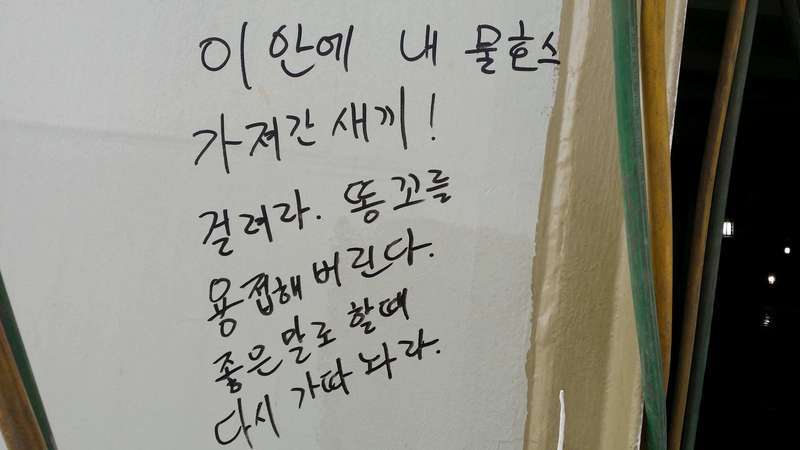 이 안에 내 물호스
가져간 새끼!
걸려라. 똥꼬를
용접해 버린다.
좋은말로 할때
다시 가따 놔라.